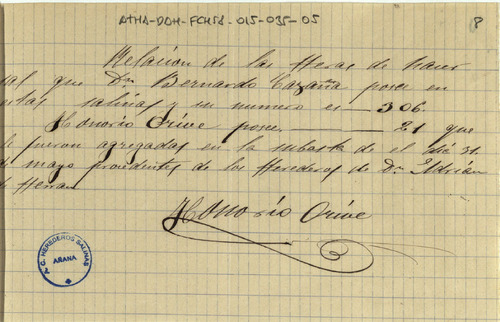 ATHA-DAH-FCHSA-015-035-05
8
Relacion de las Heras de hacer
sal que Dn. Bernardo Cazaña posee en
estas salinas y su numero es — 306
Honorio Orive posee — 21 que
le fueron agregadas en la subasta de el dia 31
de mayo procedentes de los Herederos de Dn. Adrián
de Herran
Honorio Orive
P. G. HEREDEROS SALINAS
ARANA